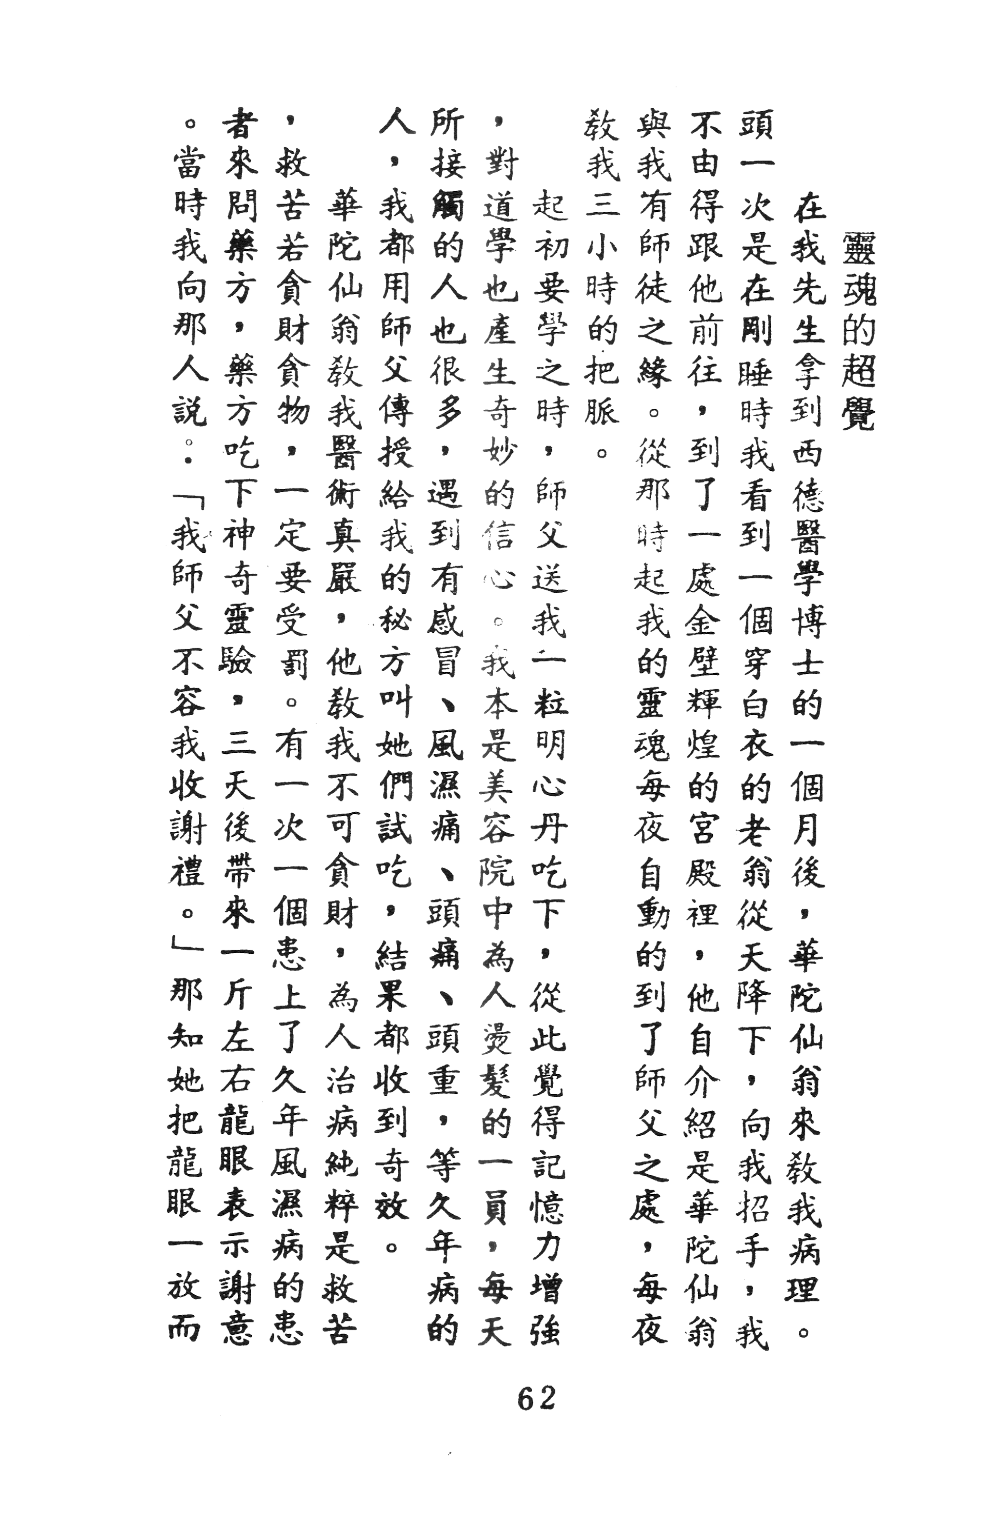 靈魂的超覺
在我先生拿到西德醫學博士的一個月後，華陀仙翁來教我病理。
頭一次是在剛睡時我看到一個穿白衣的老翁從天降下，向我招手，我
不由得跟他前往，到了一處金壁輝煌的宮殿裡，他自介紹是華陀仙翁
與我有師徒之緣。從那時起我的靈魂每夜自動的到了師父之處，每夜
教我三小時的把脈。
起初要學之時，師父送我一粒明心丹吃下，從此覺得記憶力增強
，對道學也產生奇妙的信心。我本是美容院中為人燙髮的一員，每天
所接觸的人也很多，遇到有感冒、風濕痛、頭痛、頭重，等久年病的
人，我都用師父傳授給我的秘方叫她們試吃，結果都收到奇效。
華陀仙翁教我醫術真嚴，他教我不可貪財，為人治病純粹是救苦
，救苦若貪財貪物，一定要受罰。有一次一個患上了久年風濕病的患
者來問藥方，藥方吃下神奇靈驗，三天後帶來一斤左右龍眼表示謝意
。當時我向那人說：「我師父不容我收謝禮。」那知她把龍眼一放而
62